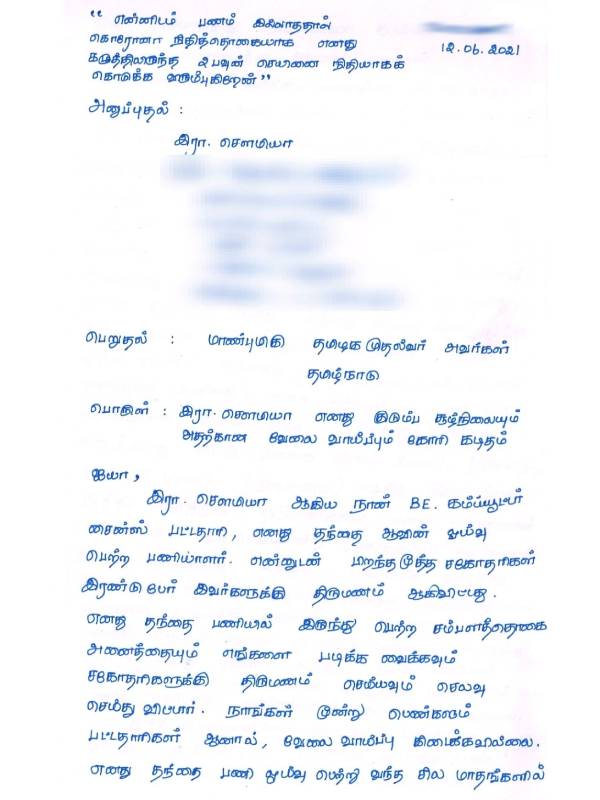 “ என்னிடம் பணம் இல்லாததால்
கொரோனா நிதித்தொகையாக எனது
கழுத்திலிருந்த 2 பவுன் செயினை நிதியாகக்
கொடுக்க விரும்புகிறேன் ”
12.06.2021
அனுப்புதல் :
இரா. சௌமியா
பெறுதல் : மாண்புமிகு தமிழக முதல்வர் அவர்கள்
தமிழ்நாடு
பொருள் : இரா. சௌமியா எனது குடும்ப சூழ்நிலையும்
அதற்கான வேலை வாய்ப்பும் கோரி கடிதம்
ஐயா ,
இரா. சௌமியா ஆகிய நான் B.E. கம்ப்யூட்டர்
சைன்ஸ் பட்டதாரி , எனது தந்தை ஆவின் ஓய்வு
பெற்ற பணியாளர். என்னுடன் பிறந்த மூத்த சகோதரிகள்
இரண்டு பேர் இவர்களுக்கு திருமணம் ஆகிவிட்டது.
எனது தந்தை பணியில் இருந்து பெற்ற சம்பளத்தொகை
அனைத்தையும் எங்களை படிக்க வைக்கவும்
சகோதரிகளுக்கு திருமணம் செய்யவும் செலவு
செய்து விட்டார். நாங்கள் மூன்று பெண்களும்
பட்டதாரிகள் ஆனால் , வேலை வாய்ப்பு கிடைக்கவில்லை.
எனது தந்தை பணி ஓய்வு பெற்று வந்த சில மாதங்களில்